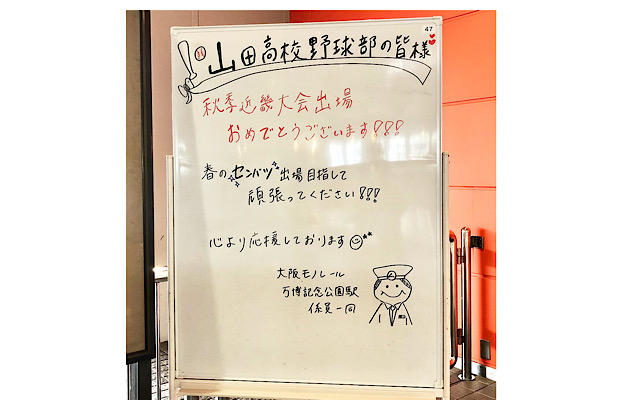 47
山田高校野球部の皆様
秋季近畿大会出場
おめでとうございます!!!
春のセンバツ出場目指して
頑張ってください!!!
心より応援しております
大阪モノレール
万博記念公園駅
係員一同